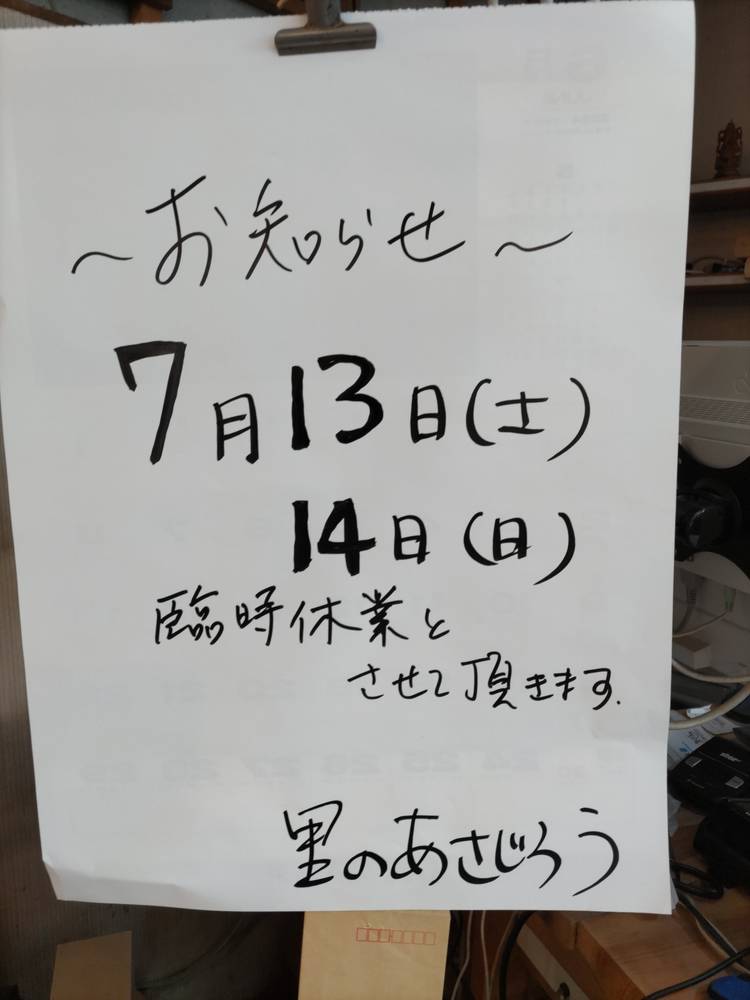 ～お知らせ～
7月13日(土)
14日(日)
臨時休業と
させて頂きます.
里のあさじろう